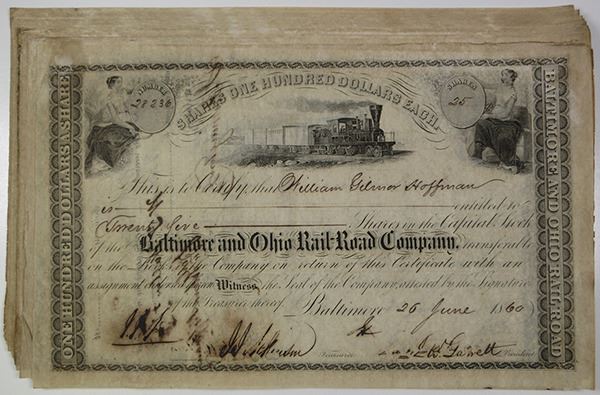 NUMBER
28236
SHARES ONE HUNDRED DOLLARS EACH.
SHARES
25
ONE HUNDRED DOLLARS A SHARE
BALTIMORE AND OHIO RAIL-ROAD
This is to Certify, that William Gilmor Hoffman
is entitled to
Twenty five Shares in the Capital Stock
of the Baltimore and Ohio Rail-Road Company, transferable
on the Company on return of this Certificate with an
assignment Witness the Seal of the Company, attested by the Signature
of the Treasurer thereof. Baltimore 25 June 1860
Treasurer J W Garrett President